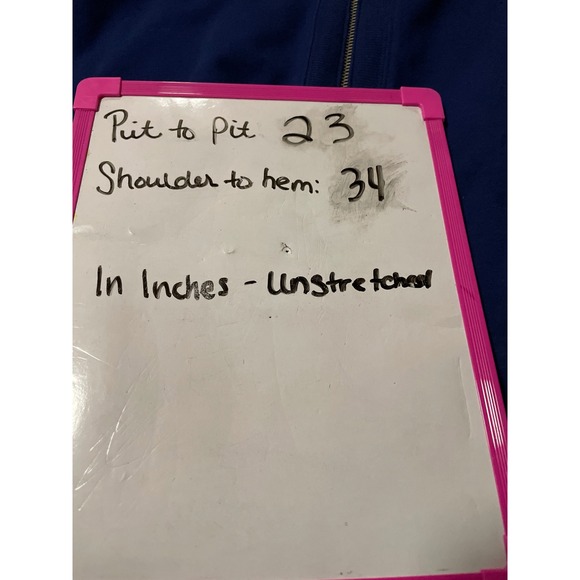 Pit to Pit 23
Shoulder to hem: 34
In Inches - Unstretched